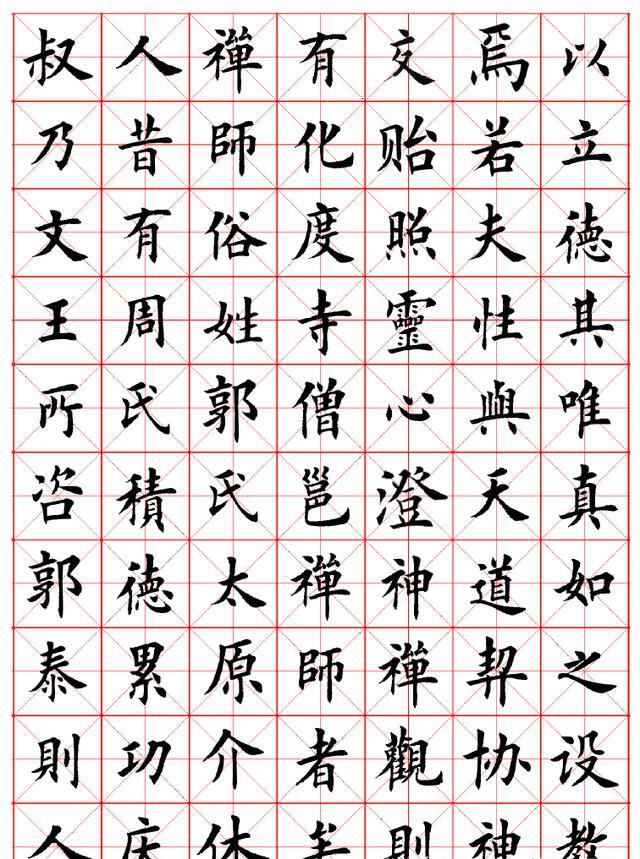 以立德其唯真如之设教
焉若夫性與天道契协神
交贻照靈心澄神禪觀則
有化度寺僧邕禪師者矣
禪師俗姓郭氏太原介休
人昔有周氏積德累功庆
叔乃文王所咨郭泰則人